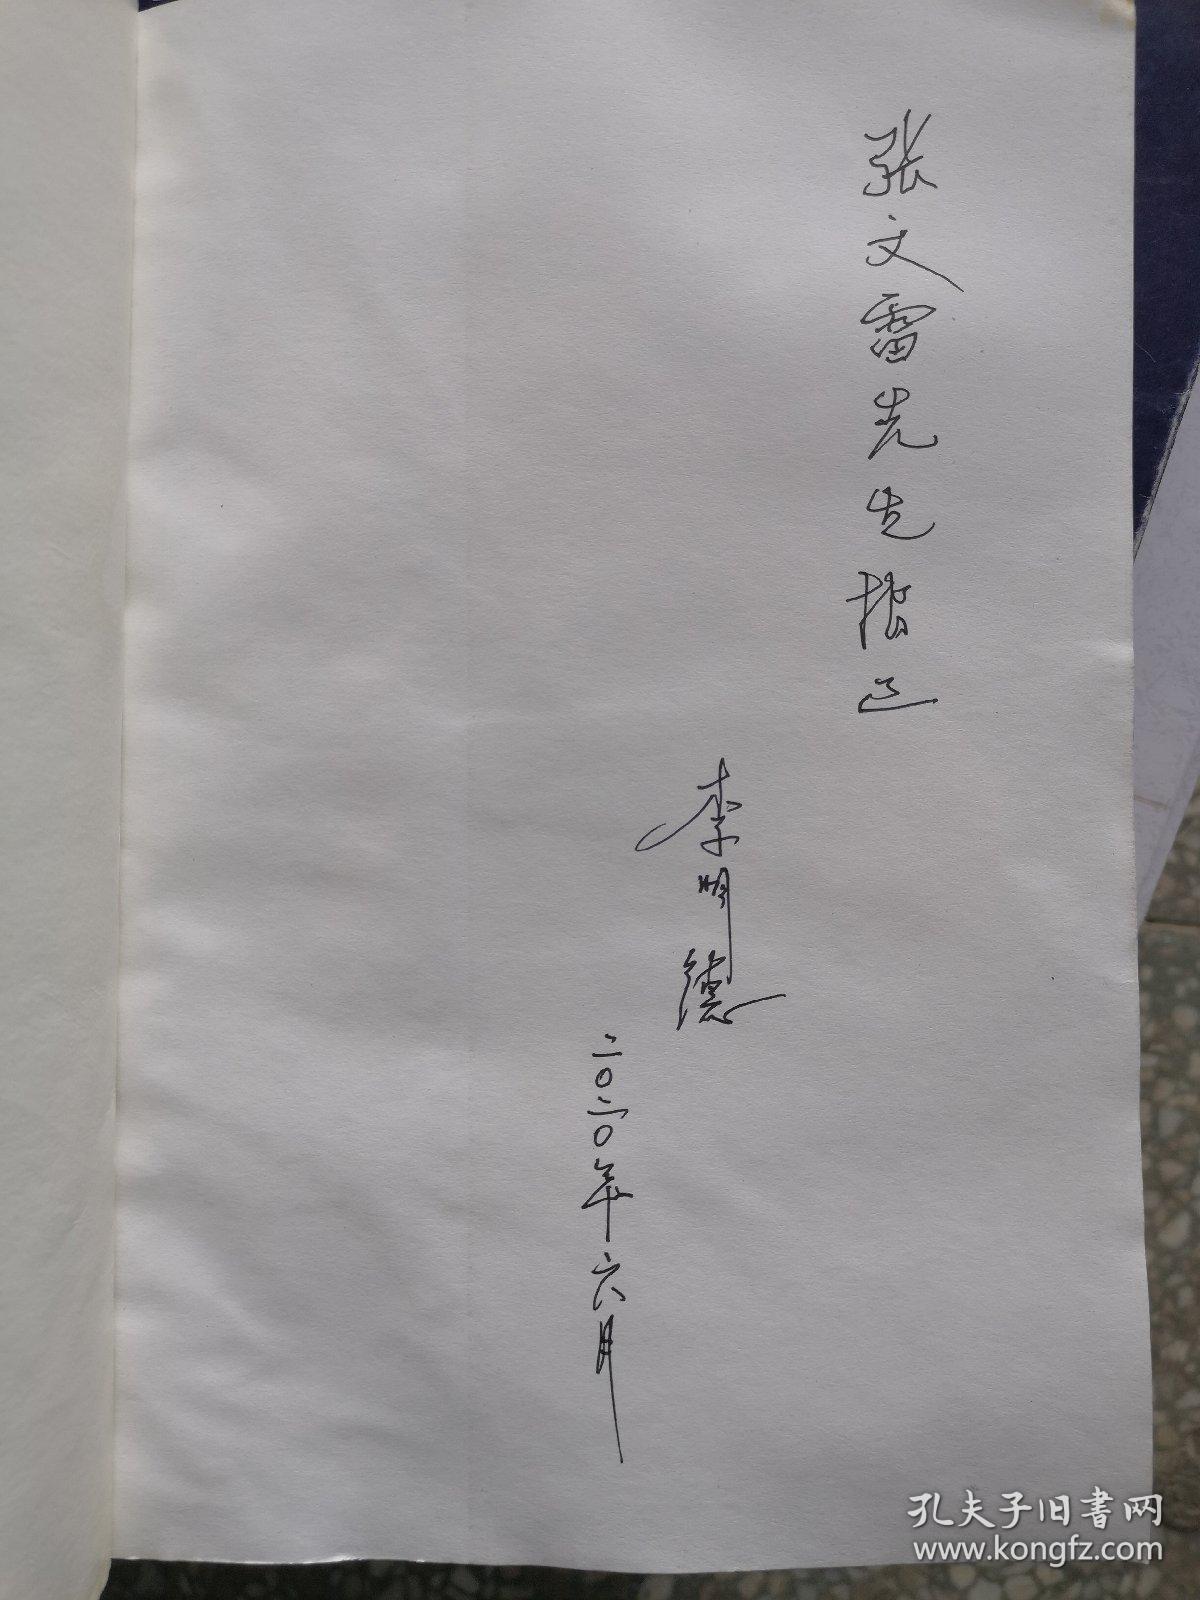 张文雷先生指正
李明德
二〇二〇年六月
孔夫子旧书网
www.kongfz.com